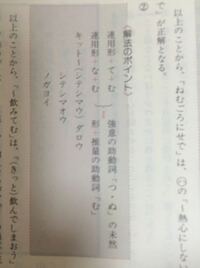 以上のことから、「ねむごろにせで」は、㋺の「〜熱心にしない
で」が正解となる。
②
〈解法のポイント〉
連用形＋て＋む
連用形＋な＋む
強意の助動詞「つ・ぬ」の未然
形＋推量の助動詞「む」
キット〜（シテシマウ）ダロウ
シテシマオウ
ノガヨイ
以上のことから、「〜飲みてむ」は、「（きっと）飲んでしまおう」